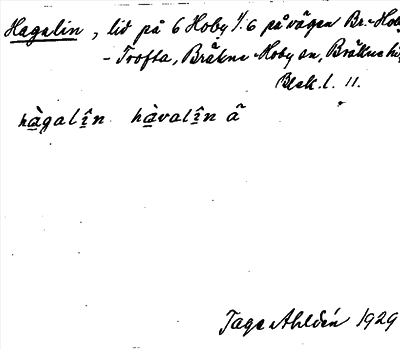 Hagalin, lid på 6 Hoby 1/6 på vägen Br.-Hoby
- Trofta, Bräkne-Hoby sn, Bräkne hd
Blek. l. 11.
hàgalîn hàvalîn ã
Tage Ahldén 1929